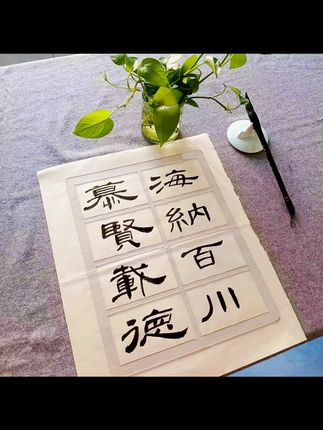 海納百川
慕賢載德